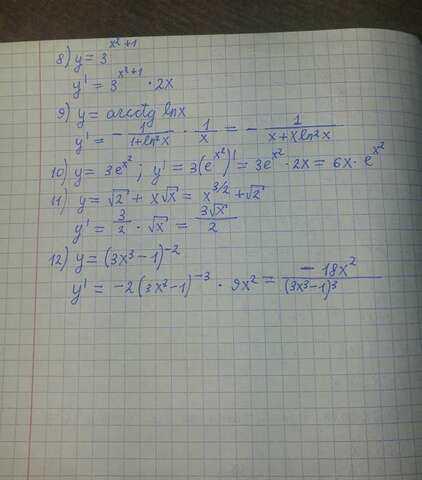 8) y = 3^(x²+1)
y' = 3^(x²+1) · 2x
9) y = arcctg lnx
y' = - 1/(1+ln²x) · 1/x = - 1/(x+xln²x)
10) y = 3e^(x²) ; y' = 3(e^(x²))' = 3e^(x²) · 2x = 6x · e^(x²)
11) y = √2 + x√x = x^(3/2) + √2
y' = 3/2 · √x = 3√x/2
12) y = (3x³-1)^(-2)
y' = -2(3x³-1)^(-3) · 9x² = -18x²/(3x³-1)³